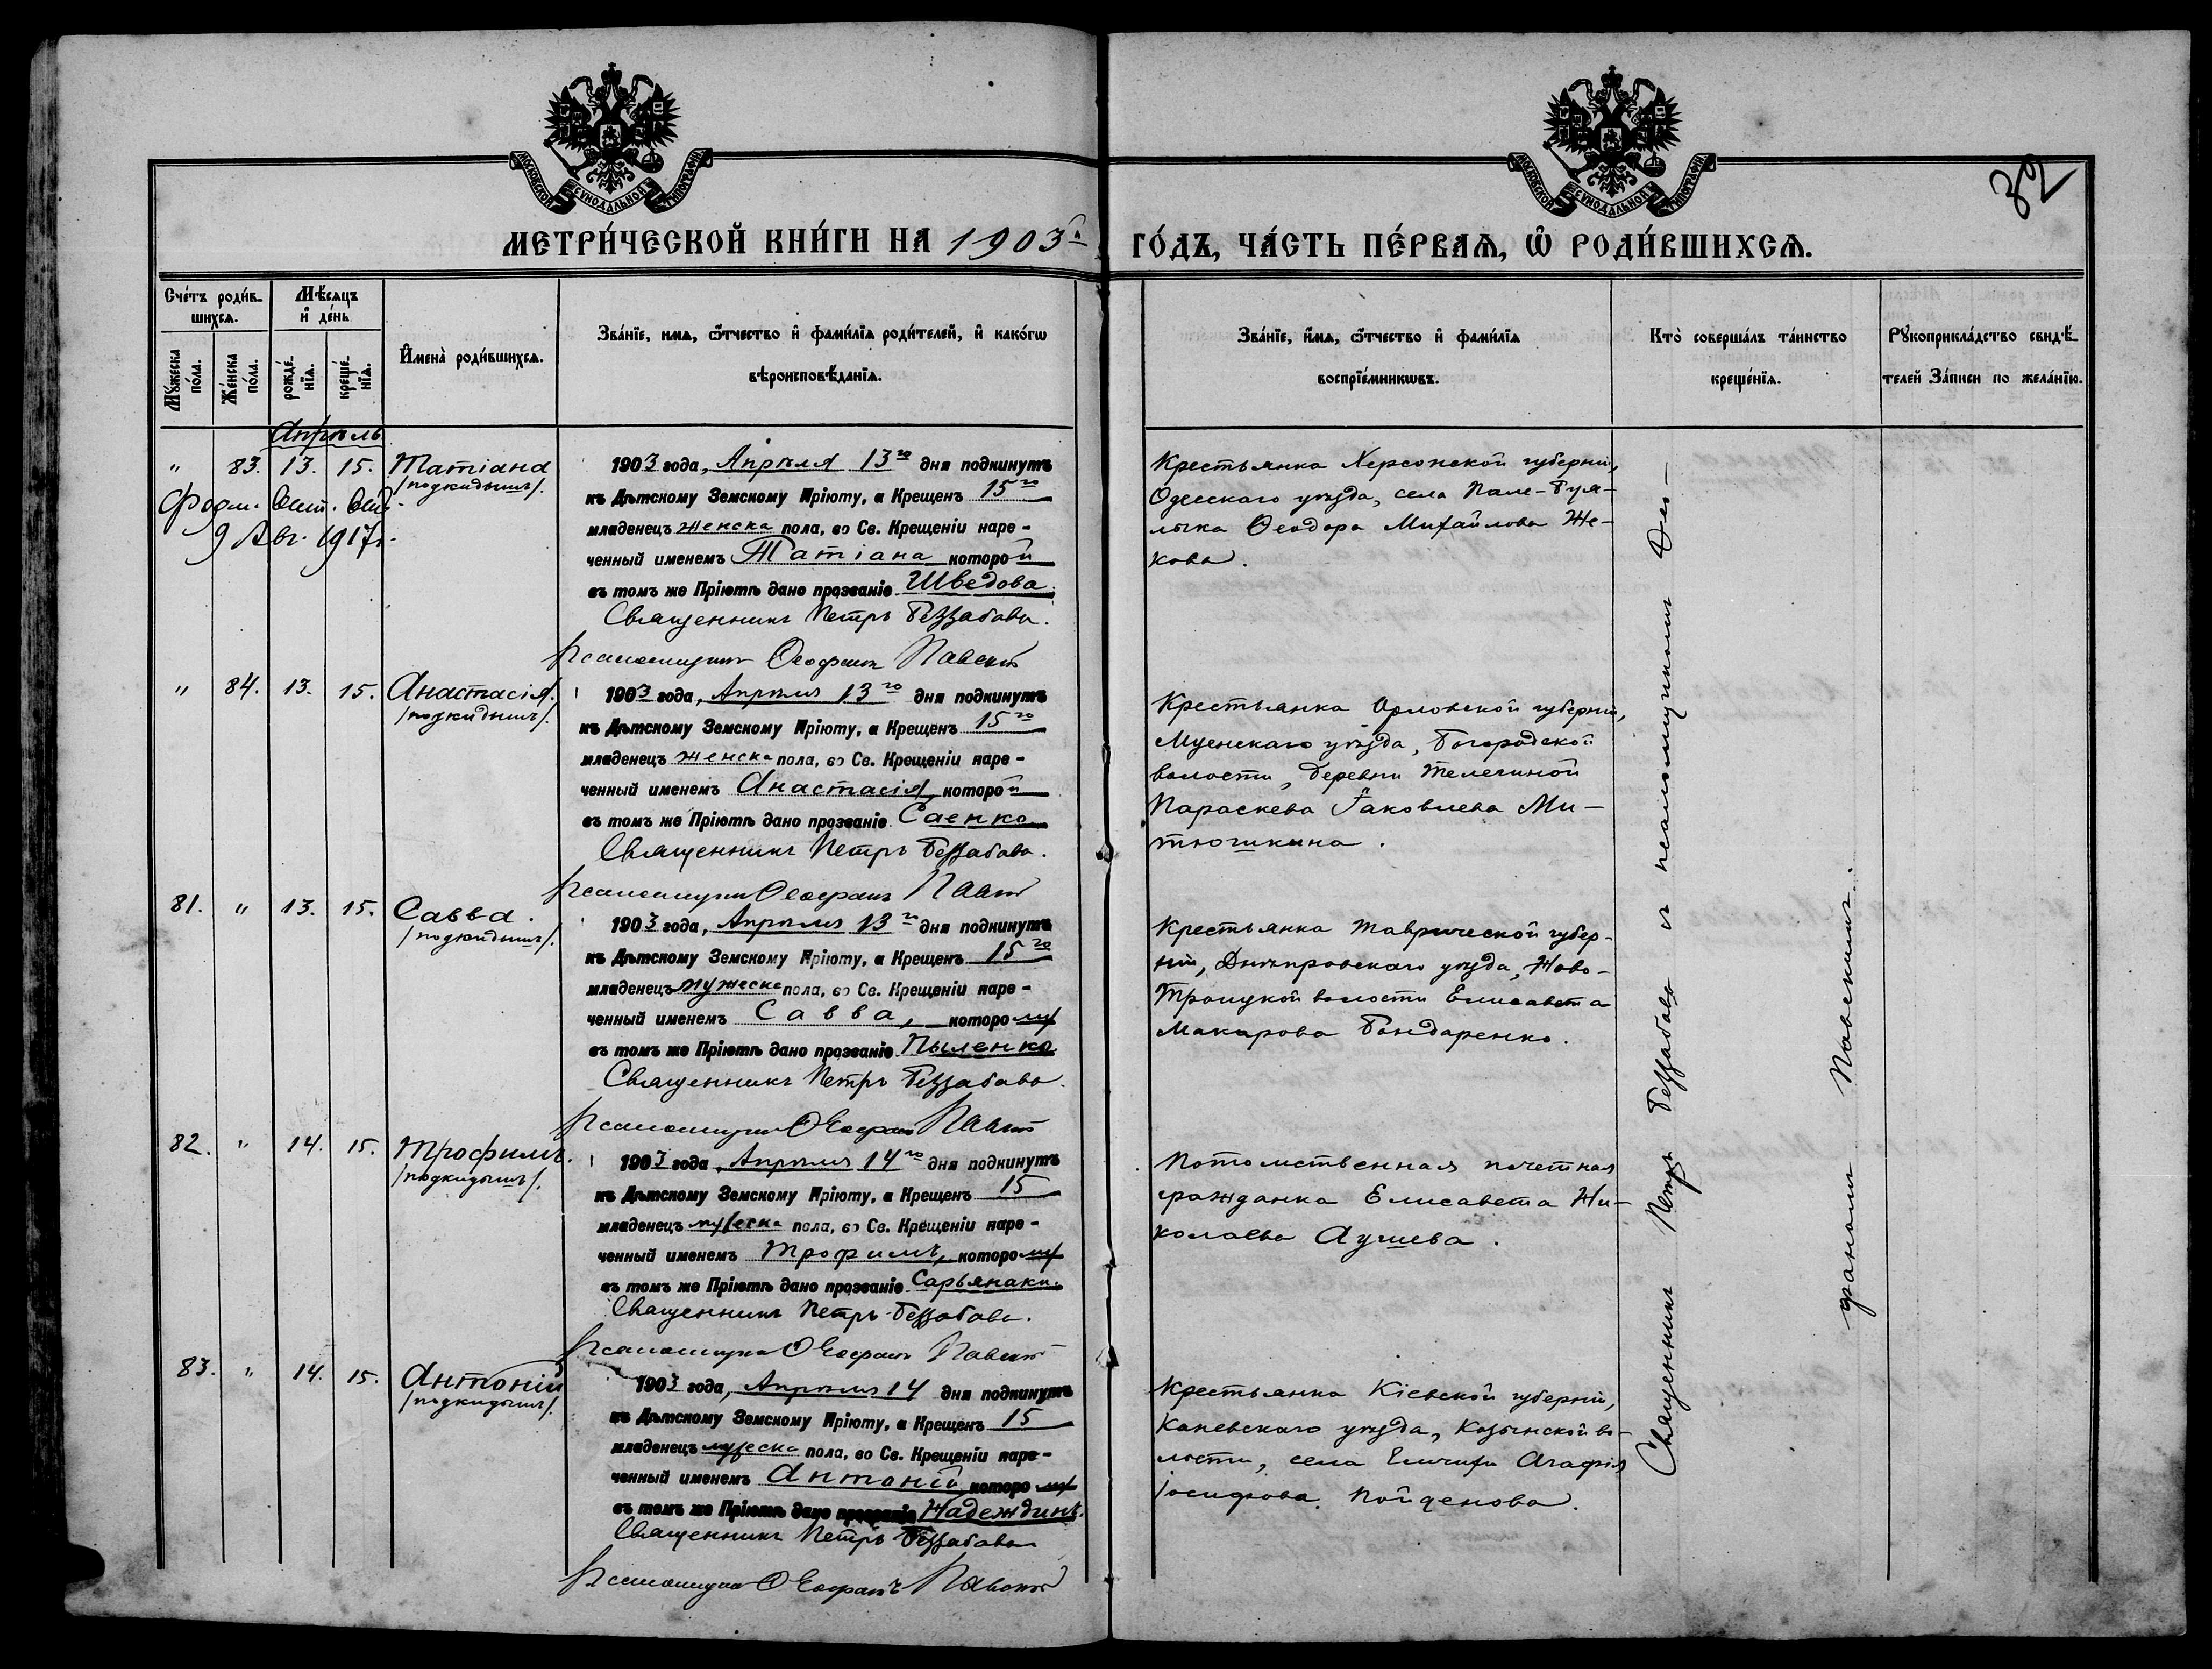 МОСКОВСКОЙ СѴНОДАЛЬНОЙ ТИПОГРАФІИ
МОСКОВСКОЙ СѴНОДАЛЬНОЙ ТИПОГРАФІИ
32
МЕТРИ́ЧЕСКОЙ КНИ́ГИ НА 1903й
ГО́ДЪ, ЧА́СТЬ ПЕ́РВАѦ, Ѽ РОДИ́ВШИХСѦ.
Сче́тъ роди́в-
шихсѧ.
Мѣ́сѧцъ
и҆ де́нь
Мꙋ́жеска по́ла.
Же́нска по́ла.
рожде́-нїѧ.
креще́-нїѧ.
И҆мена̀ роди́вшихсѧ.
Зва́нїе, имѧ, ѻ҆́тчество и҆ фами́лїѧ роди́телей, и҆ како́гѡ
вѣроисповѣ́данїѧ.
Зва́нїе, и҆́мѧ, ѻ҆́тчество и҆ фами́лїѧ
воспрїе́мникѡвъ.
Кто̀ соверша́лъ та́инство
креще́нїѧ.
Рꙋкоприкла́дство свидѣ́-
телей За́писи по жела́нїю.
Апрѣль
" 83. 13. 15. Татіана
/подкидышъ/.
9 Авг. 1917г.
1903 года, Апрѣля 13го дня подкинутъ
къ Дѣтскому Земскому Пріюту, а Крещенъ 15го
младенецъ женска пола, во Св. Крещеніи наре-
ченный именемъ Татіана которой
въ томъ же Пріютѣ дано прозваніе Шведова.
Священникъ Петръ Беззабава.
Псаломщикъ Ѳеофанъ Павскій
Крестьянка Херсонской губерніи,
Одесскаго уѣзда, села
Ѳеодора Михайлова Же-
кова.
" 84. 13. 15. Анастасія.
/подкидышъ/.
1903 года, Апрѣля 13го дня подкинутъ
къ Дѣтскому Земскому Пріюту, а Крещенъ 15го
младенецъ женска пола, во Св. Крещеніи наре-
ченный именемъ Анастасія, которой
въ томъ же Пріютѣ дано прозваніе Саенко
Священникъ Петръ Беззабава.
Псаломщикъ Ѳеофанъ Павскій
Крестьянка Орловской губерніи,
Мценскаго уѣзда, Богородской
волости, деревни Телегиной
Параскева Іаковлева Ми-
тюшкина.
81. " 13. 15. Савва.
/подкидышъ/.
1903 года, Апрѣля 13го дня подкинутъ
къ Дѣтскому Земскому Пріюту, а Крещенъ 15го
младенецъ мужеска пола, во Св. Крещеніи наре-
ченный именемъ Савва, которому
въ томъ же Пріютѣ дано прозваніе Пыленко
Священникъ Петръ Беззабава.
Псаломщикъ Ѳеофанъ Павскій
Крестьянка Таврической губер-
ніи, Днѣпровскаго уѣзда, Ново-
Троицкой волости Елисавета
Макарова Бондаренко.
82. " 14. 15. Трофимъ.
/подкидышъ/.
1903 года, Апрѣля 14го дня подкинутъ
къ Дѣтскому Земскому Пріюту, а Крещенъ 15
младенецъ мужеска пола, во Св. Крещеніи наре-
ченный именемъ Трофимъ, которому
въ томъ же Пріютѣ дано прозваніе Сарьянаки.
Священникъ Петръ Беззабава.
Псаломщикъ Ѳеофанъ Павскій
Потомственная почетная
гражданка Елисавета Ни-
колаева Аушева.
83. " 14. 15. Антоній
/подкидышъ/.
1903 года, Апрѣля 14 дня подкинутъ
къ Дѣтскому Земскому Пріюту, а Крещенъ 15
младенецъ мужеска пола, во Св. Крещеніи наре-
ченный именемъ Антоній, которому
въ томъ же Пріютѣ дано прозваніе Надеждинъ.
Священникъ Петръ Беззабава
Псаломщикъ Ѳеофанъ Павскій
Крестьянка Кіевской губерніи,
Каневскаго уѣзда, Козинской во-
лости, села Агафія
Іосифова Пойденова.
Священникъ Петръ Беззабава съ псаломщикомъ Ѳео-
фаномъ Павскимъ.